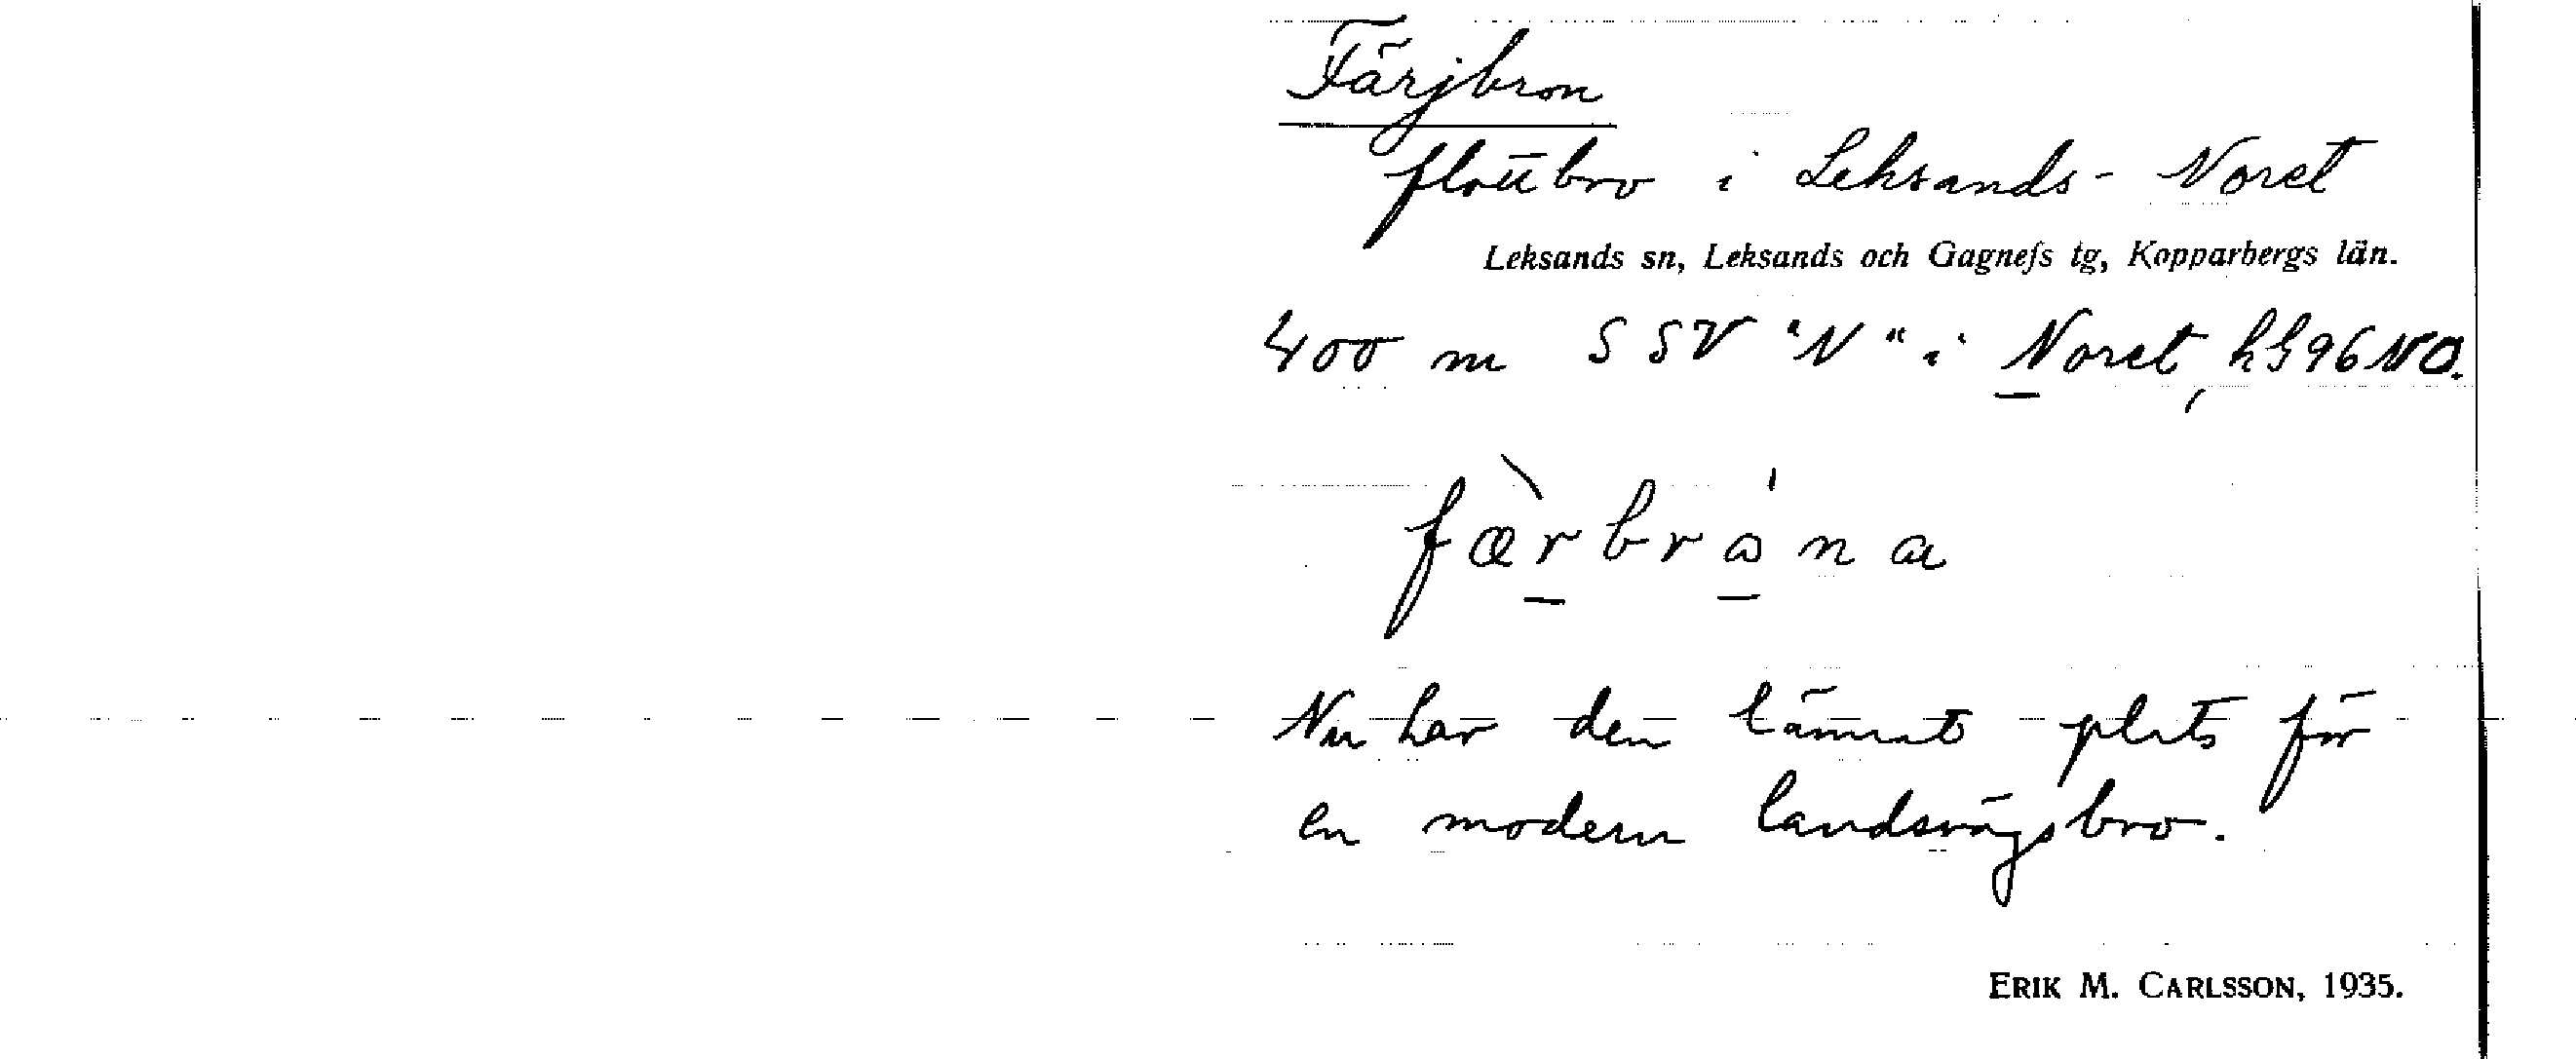 Färjbron
flottbro i Leksands-Noret
Leksands sn, Leksands och Gagnefs tg, Kopparbergs län.
400 m SSV "N" i Noret, hG96NO.
færbrɷna
Nu har den lämnat plats för
en modern landsvägsbro.
ERIK M. CARLSSON, 1935.